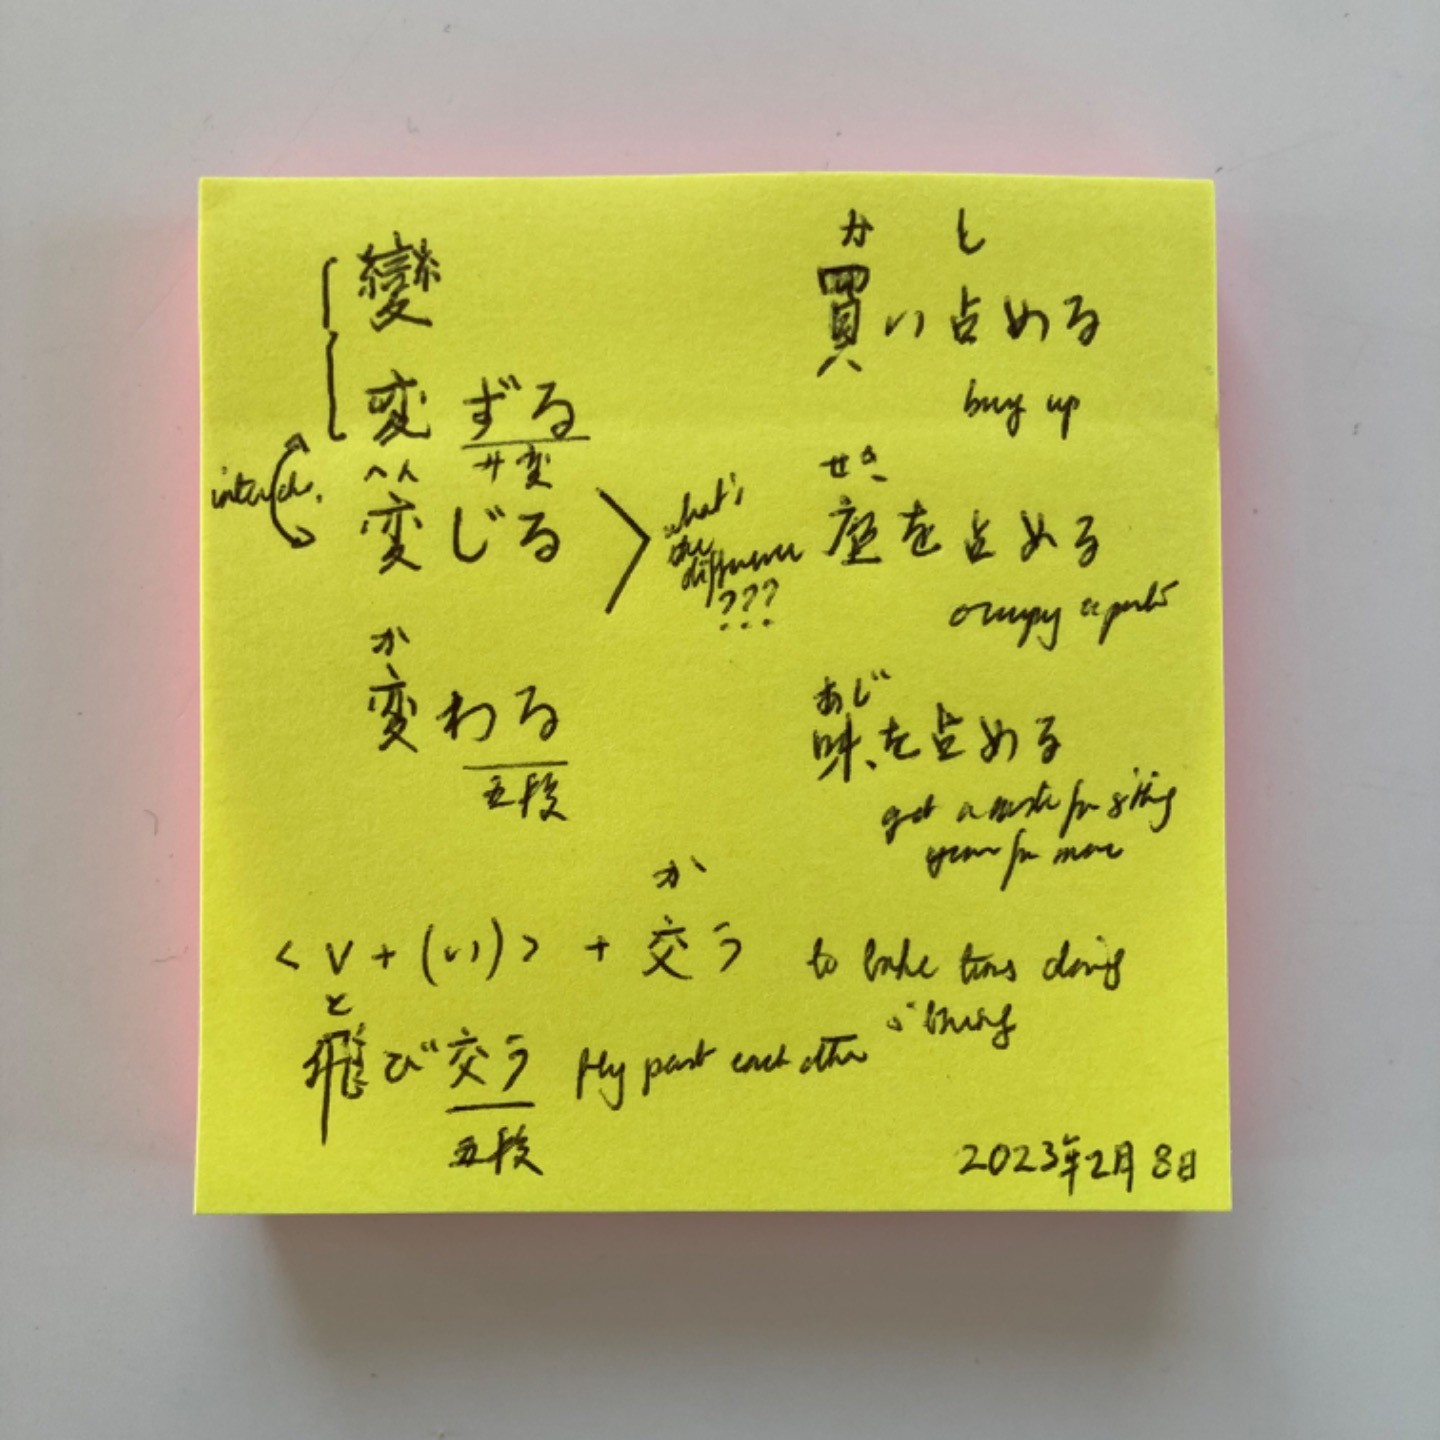 變
変ずる
サ変
へん
変じる
what's
the
difference
???
か
変わる
五段
か し
買い占める
buy up
せき
座を占める
occupy a
あじ
味を占める
get a taste for s'thing
yearn for more
か
<V+(い)>+交う to take turns doing
s'thing
と
飛び交う fly past each other
五段
2023年2月8日